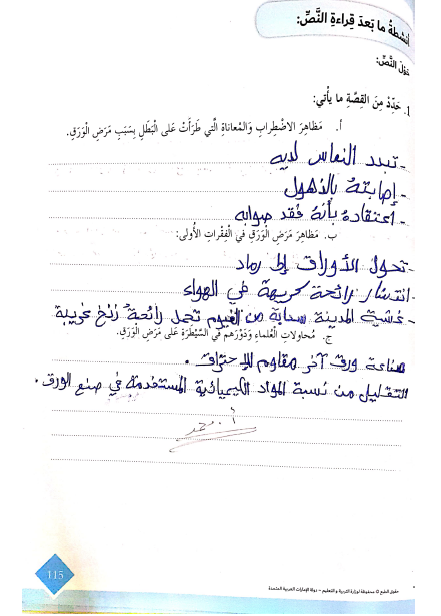 أنشطة ما بَعدَ قِراءةِ النَّصِّ:
حَولَ النَّصِّ:
1. حَدِّدْ مِنَ القِصَّةِ ما يَأتي:
أ. مَظاهِرَ الاضْطِرابِ والمُعاناةِ الَّتي طَرَأَتْ عَلى البَطَلِ بِسَبَبِ مَرَضِ الوَرَقِ.
- تبدد النعاس لديه
- إصابته بالذهول
- اعتقاده بأنه فقد صوابه
ب. مَظاهِرَ مَرَضِ الوَرَقِ في الفِقْراتِ الأولى:
- تحول الأوراق إلى رماد
- انتشار رائحة كريهة في الهواء
- غشيت المدينة سحابة من الغيوم تحمل رائحة زنخ غريبة
ج. مُحاوَلاتِ العُلَماءِ وَدَوْرَهُمْ في السَّيْطَرَةِ عَلى مَرَضِ الوَرَقِ.
صناعة ورق آخر مقاوم للإحتراق.
التقليل من نسبة المواد الكيميائية المستخدمة في صنع الورق.
115
حقوق الطبع © محفوظة لوزارة التربية والتعليم - دولة الإمارات العربية المتحدة